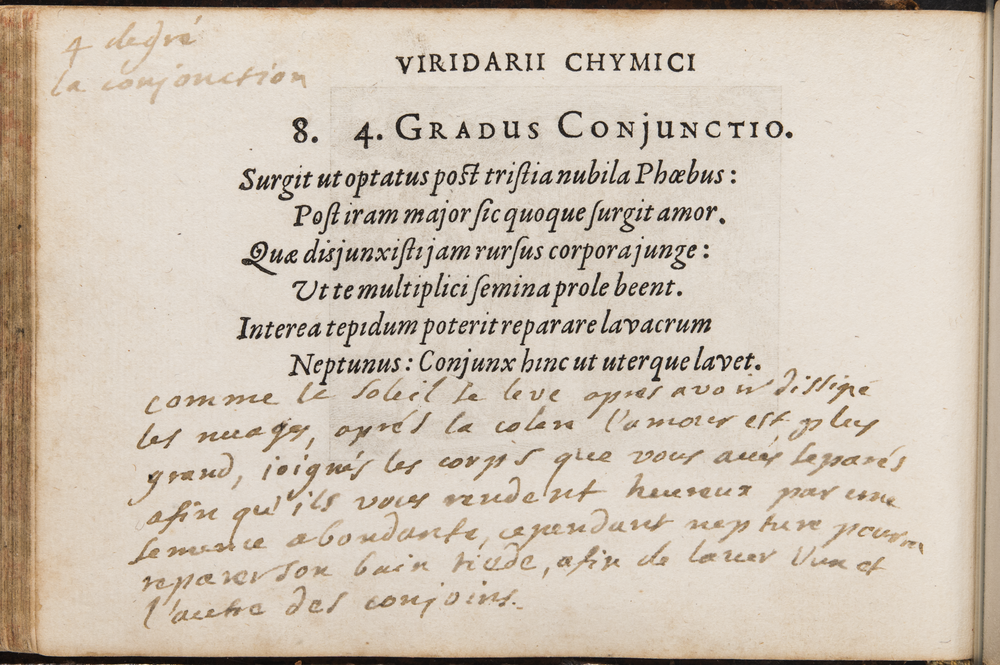 4 degré
la conjonction
VIRIDARII CHYMICI
8. 4. GRADUS CONJUNCTIO.
Surgit ut optatus post tristia nubila Phœbus:
Post iram major sic quoque surgit amor.
Quæ disjunxisti jam rursus corpora junge:
Ut te multiplici semina prole beent.
Interea tepidum poterit reparare lavacrum
Neptunus: Conjunx hinc ut uterque lavet.
comme le soleil se leve apres avoir dissipé
les nuages, aprés la colere l'amour est plus
grand, joignés les corps que vous avés separés
afin qu'ils vous rendent heureux par une
semence abondante, cependant neptune pourra
reparer son bain tiede, afin de laver l'un et
l'autre des conjoins.